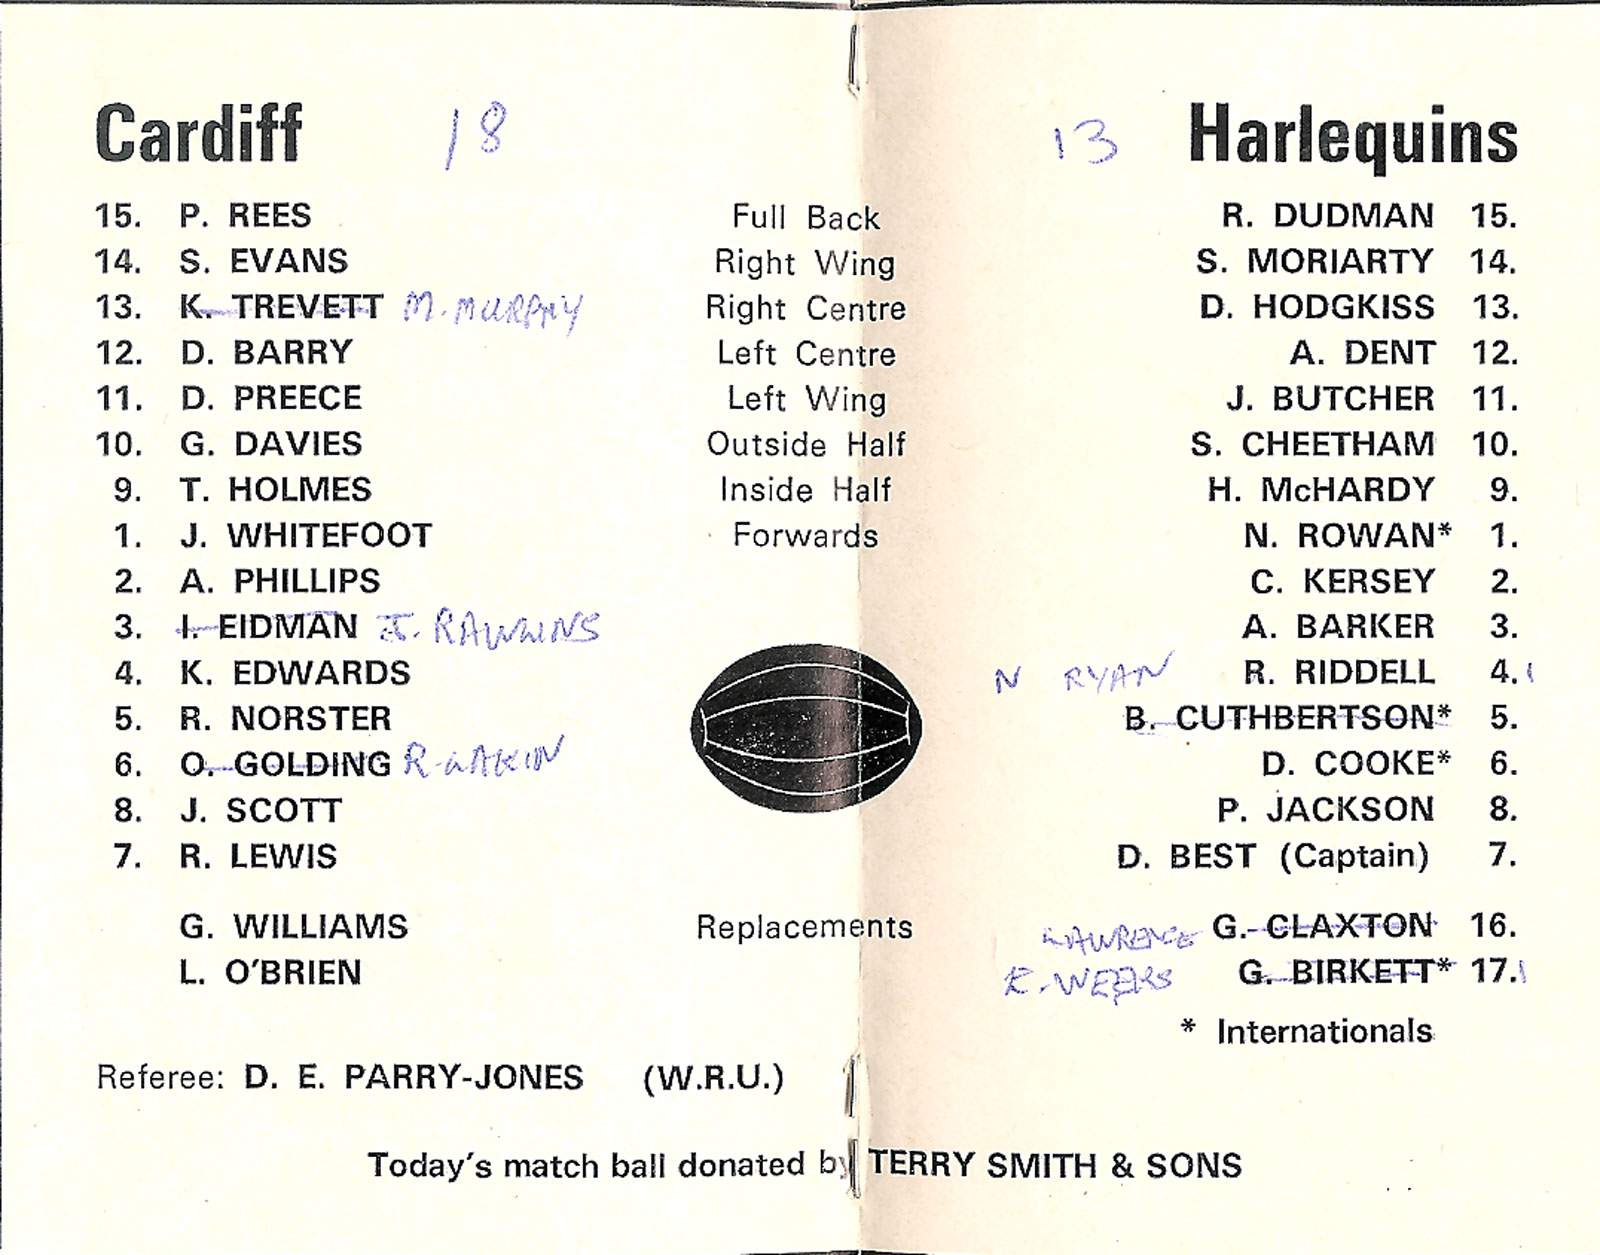 Cardiff 18 13 Harlequins
15. P. REES Full Back R. DUDMAN 15.
14. S. EVANS Right Wing S. MORIARTY 14.
13. K. TREVETT M. MURPHY Right Centre D. HODGKISS 13.
12. D. BARRY Left Centre A. DENT 12.
11. D. PREECE Left Wing J. BUTCHER 11.
10. G. DAVIES Outside Half S. CHEETHAM 10.
9. T. HOLMES Inside Half H. McHARDY 9.
1. J. WHITEFOOT Forwards N. ROWAN* 1.
2. A. PHILLIPS C. KERSEY 2.
3. I. EIDMAN A. BARKER 3.
4. K. EDWARDS N RYAN R. RIDDELL 4.
5. R. NORSTER B. CUTHBERTSON* 5.
6. O. GOLDING R. LAKIN D. COOKE* 6.
8. J. SCOTT P. JACKSON 8.
7. R. LEWIS D. BEST (Captain) 7.
G. WILLIAMS Replacements LAWRENCE G. CLAXTON 16.
L. O'BRIEN E. WEEKS G. BIRKETT* 17.
* Internationals
Referee: D. E. PARRY-JONES (W.R.U.)
Today's match ball donated by TERRY SMITH & SONS